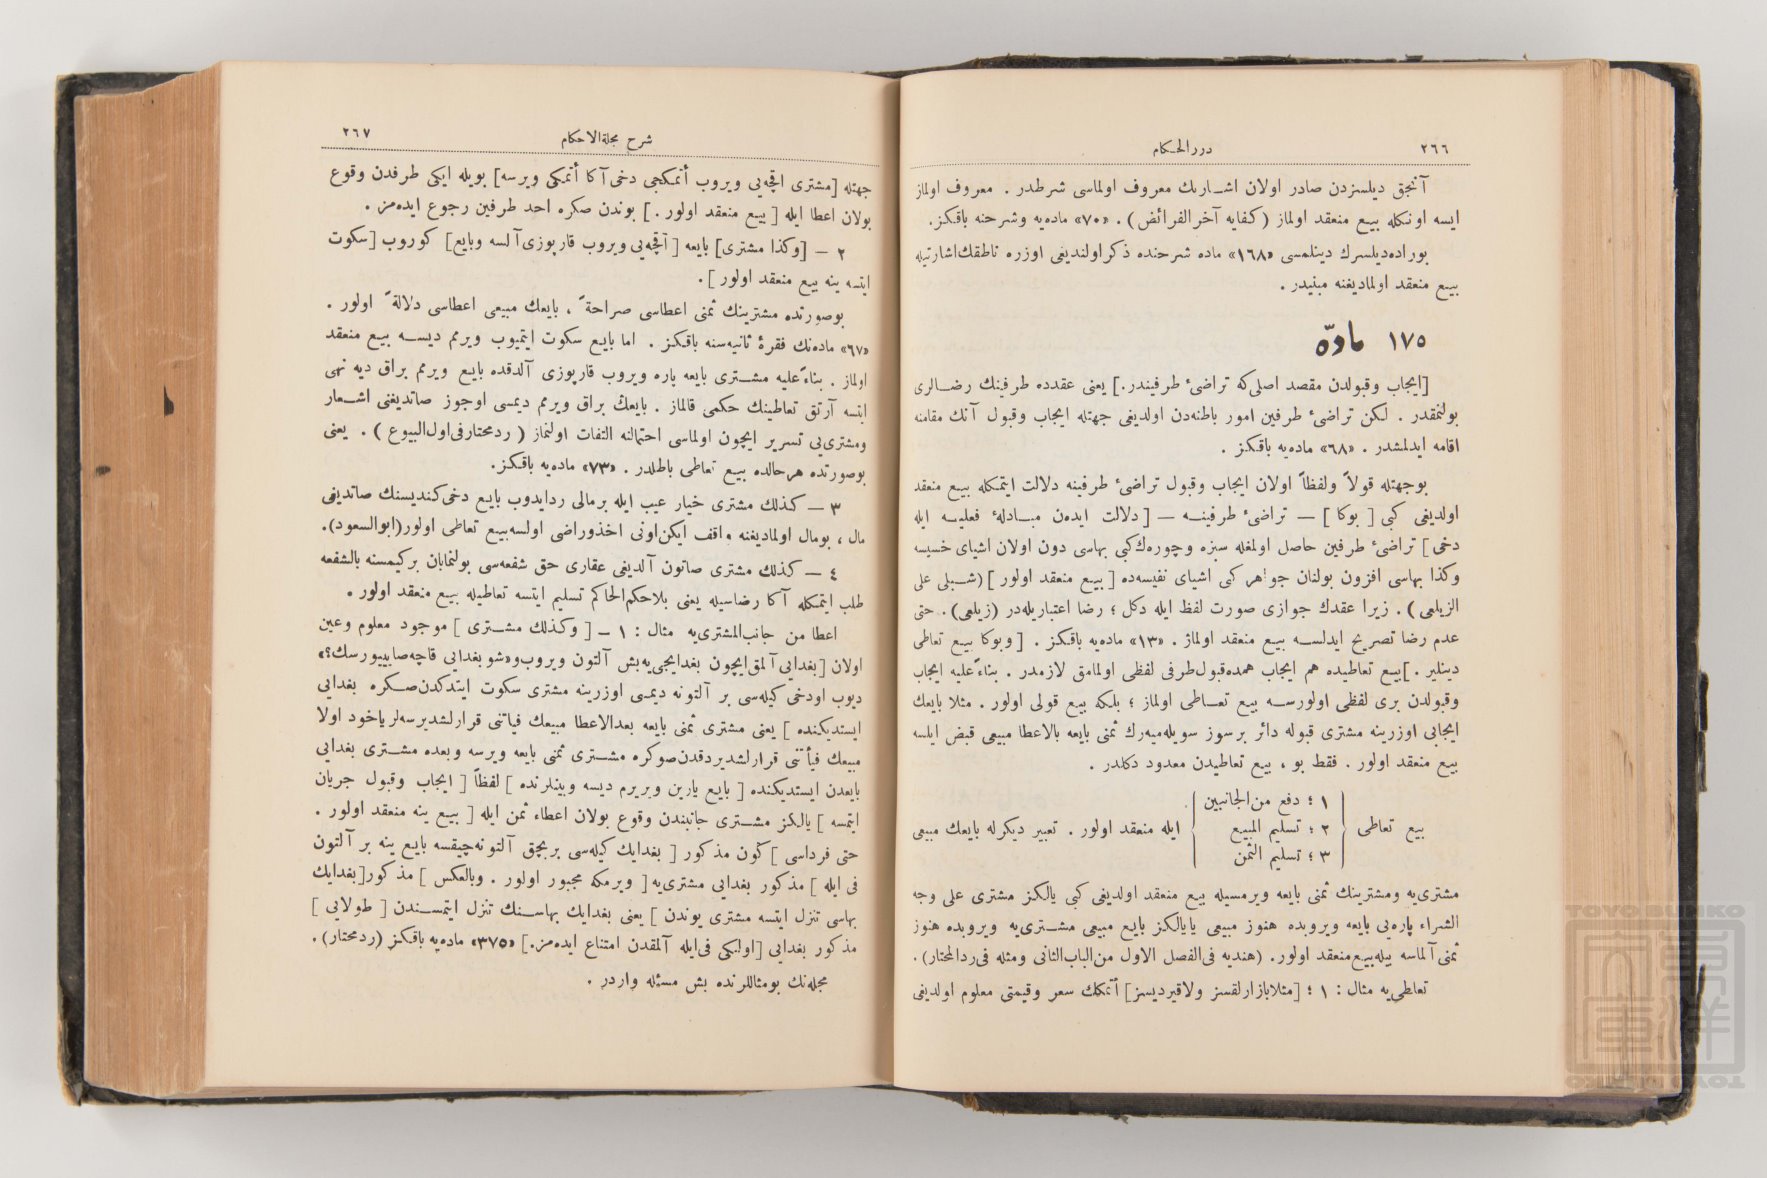 ٢٦٦
دررالحكام
آنجق ديلسزدن صادر اولان اشارتك معروف اولماسى شرطدر . معروف اولماز
ايسه اونكله بيع منعقد اولماز (كفايه آخرالفرائض) . «٧٠» ماده‌يه وشرحنه باقكز.
بوراده‌ديلسزك دينلمسى «١٦٨» ماده شرحنده ذكراولنديغى اوزره ناطقك‌اشارتيله
بيع منعقد اولماديغنه مبنيدر .
١٧٥ مادّه
[ايجاب وقبولدن مقصد اصلى‌كه تراضىٔ طرفيندر.] يعنى عقدده طرفينك رضالرى
بولنمقدر . لكن تراضىٔ طرفين امور باطنه‌دن اولديغى جهتله ايجاب وقبول آنك مقامنه
اقامه ايدلمشدر . «٦٨» ماده‌يه باقكز .
بوجهتله قولاً ولفظاً اولان ايجاب وقبول تراضىٔ طرفينه دلالت ايتمكله بيع منعقد
اولديغى كبى [ بوكا ] — تراضىٔ طرفينه — [ دلالت ايده‌ن مبادلهٔ فعليه ايله
دخى ] تراضىٔ طرفين حاصل اولمغله سبزه وچوره‌ك‌كبى بهاسى دون اولان اشياى خسيسه
وكذا بهاسى افزون بولنان جواهر كبى اشياى نفيسه‌ده [ بيع منعقد اولور ] (شبلى على
الزيلعى) . زيرا عقدك جوازى صورت لفظ ايله دكل ؛ رضا اعتباريله‌در (زيلعى) . حتى
عدم رضا تصريح ايدلسه بيع منعقد اولماز . «١٣» ماده‌يه باقكز . [ وبوكا بيع تعاطى
دينلير . ] بيع تعاطيده هم ايجاب همده‌قبول‌طرفى لفظى اولمامق لازمدر . بناءً‌عليه ايجاب
وقبولدن برى لفظى اولورسه بيع تعاطى اولماز ؛ بلكه بيع قولى اولور . مثلا بايعك
ايجابى اوزرينه مشترى قبوله دائر برسوز سويله‌ميه‌رك ثمنى بايعه بالاعطا مبيعى قبض ايلسه
بيع منعقد اولور . فقط بو ، بيع تعاطيدن معدود دكلدر .
١ ؛ دفع من‌الجانبين
بيع تعاطى ٢ ؛ تسليم المبيع ايله منعقد اولور . تعبير ديكرله بايعك مبيعى
٣ ؛ تسليم الثمن
مشترى‌يه ومشترينك ثمنى بايعه ويرمسيله بيع منعقد اولديغى كبى يالكز مشترى على وجه
الشراء پاره‌يى بايعه ويروبده هنوز مبيعى يايالكز بايع مبيعى مشترى‌يه ويروبده هنوز
ثمنى آلماسه بيله‌بيع‌منعقد اولور. (هنديه فى‌الفصل الاول من‌الباب‌الثانى ومثله فى‌ردالمحتار).
تعاطى‌يه مثال : ١ ؛ [مثلابازارلقسز ولاقيرديسز] أتمكك سعر وقيمتى معلوم اولديغى
شرح مجلةالاحكام
٢٦٧
جهتله [مشترى اقچه‌يى ويروب أتمكجى دخى‌آكا أتمكى ويرسه] بويله ايكى طرفدن وقوع
بولان اعطا ايله [ بيع منعقد اولور . ] بوندن صكره احد طرفين رجوع ايده‌مز .
٢ — [وكذا مشترى] بايعه [ آقچه‌يى ويروب قارپوزى‌آلسه وبايع] كوروب [سكوت
ايتسه ينه بيع منعقد اولور ] .
بوصورتده مشترينك ثمنى اعطاسى صراحةً ، بايعك مبيعى اعطاسى دلالةً اولور .
«٦٧» ماده‌نك فقرهٔ ثانيه‌سنه باقكز . اما بايع سكوت ايتميوب ويرمم ديسه بيع منعقد
اولماز . بناءً‌عليه مشترى بايعه پاره ويروب قارپوزى آلدقده بايع ويرمم براق ديه نهى
ايتسه آرتق تعاطينك حكمى قالماز . بايعك براق ويرمم ديمسى اوجوز صاتديغنى اشعار
ومشترى‌يى تسرير ايچون اولماسى احتمالنه التفات اولنماز ( ردمحتارفى‌اول‌البيوع ) . يعنى
بوصورتده هرحالده بيع تعاطى باطلدر . «٧٣» ماده‌يه باقكز.
٣ — كذلك مشترى خيار عيب ايله برمالى ردايدوب بايع دخى‌كنديسنك صاتديغى
مال ، بومال اولماديغنه واقف ايكن‌اونى اخذوراضى اولسه‌بيع تعاطى اولور(ابوالسعود).
٤ — كذلك مشترى صاتون آلديغى عقارى حق شفعه‌سى بولنمايان بركيمسنه بالشفعه
طلب ايتمكله آكا رضاسيله يعنى بلاحكم‌الحاكم تسليم ايتسه تعاطيله بيع منعقد اولور .
اعطا من جانب‌المشترى‌يه مثال : ١ – [ وكذلك مشترى ] موجود معلوم وعين
اولان [بغدايى آلمق‌ايچون بغدايجى‌يه‌بش آلتون ويروب‌و«شو بغدايى قاچه‌صاتييورسك؟»
ديوب اودخى كيله‌سى بر آلتونه ديمسى اوزرينه مشترى سكوت ايتدكدن‌صكره بغدايى
ايستديكنده ] يعنى مشترى ثمنى بايعه بعدالاعطا مبيعك فياتنى قرارلشديرسه‌لرياخود اولا
مبيعك فيأتنى قرارلشديردقدن‌صوكره مشترى ثمنى بايعه ويرسه وبعده مشترى بغدايى
بايعدن ايستديكنده [ بايع يارين ويريرم ديسه وبينلرنده ] لفظاً [ ايجاب وقبول جريان
ايتمسه ] يالكز مشترى جانبندن وقوع بولان اعطاء ثمن ايله [ بيع ينه منعقد اولور .
حتى فرداسى ] كون مذكور [ بغدايك كيله‌سى بربچق آلتونه‌چيقسه بايع ينه بر آلتون
فى ايله ] مذكور بغدايى مشترى‌يه [ ويرمكه مجبور اولور . وبالعكس ] مذكور[بغدايك
بهاسى تنزل ايتسه مشترى بوندن ] يعنى بغدايك بهاسنك تنزل ايتمسندن [ طولايى ]
مذكور بغدايى [اولكى فى‌ايله آلمقدن امتناع ايده‌مز.] «٣٧٥» ماده‌يه باقكز (ردمحتار).
مجله‌نك بومثاللرنده بش مسئله واردر .
TOYO BUNKO
東洋文庫
TOYO BUNKO